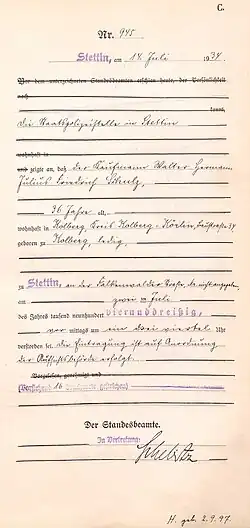 C.
Nr. 945
Stettin, am 14 Juli 1934
Vor dem unterzeichneten Standesbeamten erschien heute, der Persönlichkeit
nach
kannt,
die Staatspolizeistelle in Stettin
wohnhaft in
und zeigte an, daß der Kaufmann Walter Hermann
Julius Friedrich Schulz,
36 Jahre alt,
wohnhaft in Kolberg, Kreis Kolberg-Körlin,
geboren zu Kolberg, ledig,
zu Stettin, an der Falkenwalder Straße,
am zwei Juli
des Jahres tausend neunhundert vierunddreißig,
vor mittags um ein drei viertel Uhr
verstorben sei. Die Eintragung ist auf Anordnung
der Aufsichtsbehörde erfolgt.
Vorgelesen, genehmigt und
(Vorstehend 16 Druckworte gestrichen)
Der Standesbeamte.
In Vertretung:
H. geb. 2.9.97.